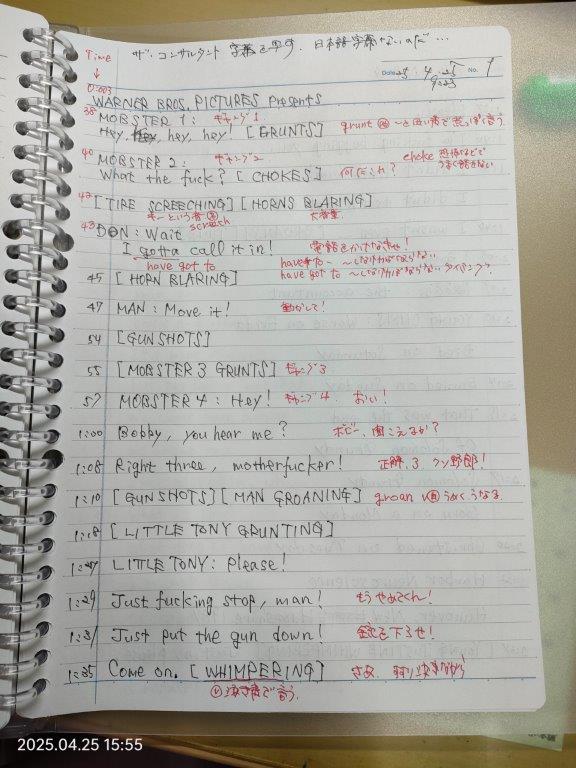 ザ・コンサルタント 字幕を写す. 日本語字幕ないのだ…
Time
↓
Date 25 4.25 No. 1
9:23
0:003
WARNER BROS. PICTURES Presents
38 MOBSTER 1: ギャング1
Hey, hey, hey! [GRUNTS] grunt
40 MOBSTER 2: ギャング2 choke 恐怖などで
What the fuck? [CHOKES] 何だこれ? うまく話せない
42 [TIRE SCREECHING] [HORNS BLARING]
キーという音 screach 大音量.
43 DON: Wait
I gotta call it in! 電話をかけなきゃ!
have got to have to ~ ~しなければならない
have got to ~しなければならない
45 [HORN BLARING]
47 MAN: Move it! 動かして!
54 [GUNSHOTS]
55 [MOBSTER 3 GRUNTS] ギャング3
57 MOBSTER 4: Hey! ギャング4. おい!
1:00 Bobby, you hear me? ボビー, 聞こえるか?
1:08 Right three, motherfucker! 正解、3. クソ野郎!
1:10 [GUNSHOTS] [MAN GROANING] groan うめく うなる
1:18 [LITTLE TONY GRUNTING]
1:27 LITTLE TONY: Please!
1:29 Just fucking stop, man! もうやめてくれ!
1:31 Just put the gun down! 銃を下ろせ!
1:35 Come on. [WHIMPERING] さあ.
泣き声で言う.
2025.04.25 15:55